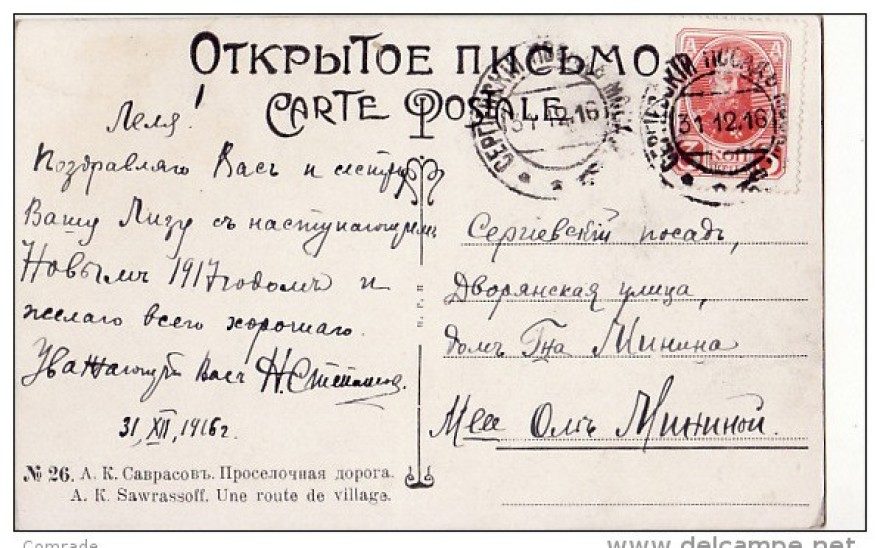 ОТКРЫТОЕ ПИСЬМО.
CARTE POSTALE.
СЕРГІЕВСКІЙ ПОСАДЪ МОСК.
31.12.16
СЕРГІЕВСКІЙ ПОСАДЪ МОСК.
31.12.16
КОП
Леля!
Поздравляю Васъ и сестру
Вашу Лизу съ наступающимъ
Новымъ 1917 годомъ и
желаю всего хорошаго.
Уважающій Васъ Н. Степанов
31, XII, 1916 г.
Сергіевскій посадъ,
Дворянская улица,
домъ Гна Минина
Мининой.
№ 26. А. К. Саврасовъ. Проселочная дорога.
A. K. Sawrassoff. Une route de village.
Comrade
www.delcampe.net